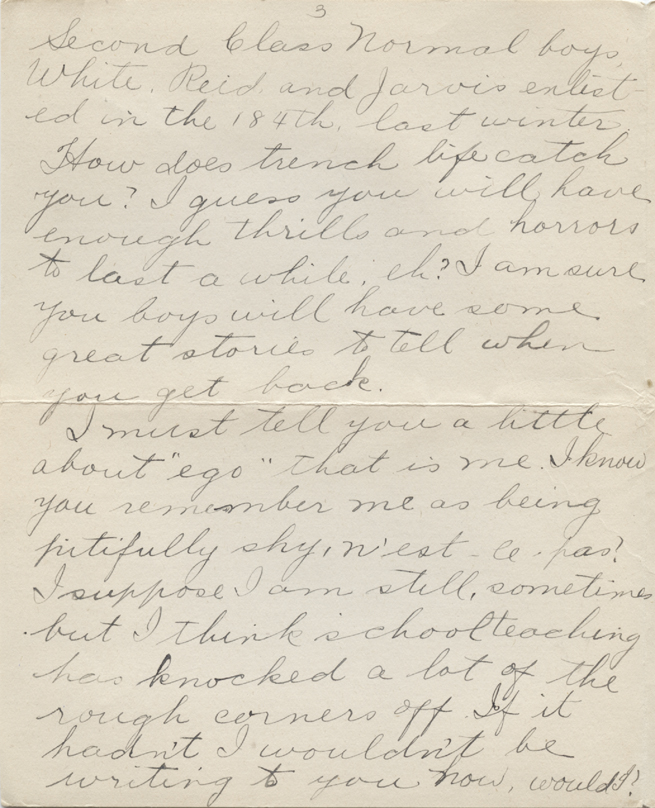 3
Second Class Normal boys,
White, Reid and Jarvis enlist-
ed in the 184th, last winter.
How does trench life catch
you? I guess you will have
enough thrills and horrors
to last a while, eh? I am sure
you boys will have some
great stories to tell when
you get back.
I must tell you a little
about "ego" that is me. I know
you remember me as being
pitifully shy, n'est-ce-pas?
I suppose I am still, sometimes
but I think schoolteaching
has knocked a lot of the
rough corners off. If it
hadn't I wouldn't be
writing to you now, would I?